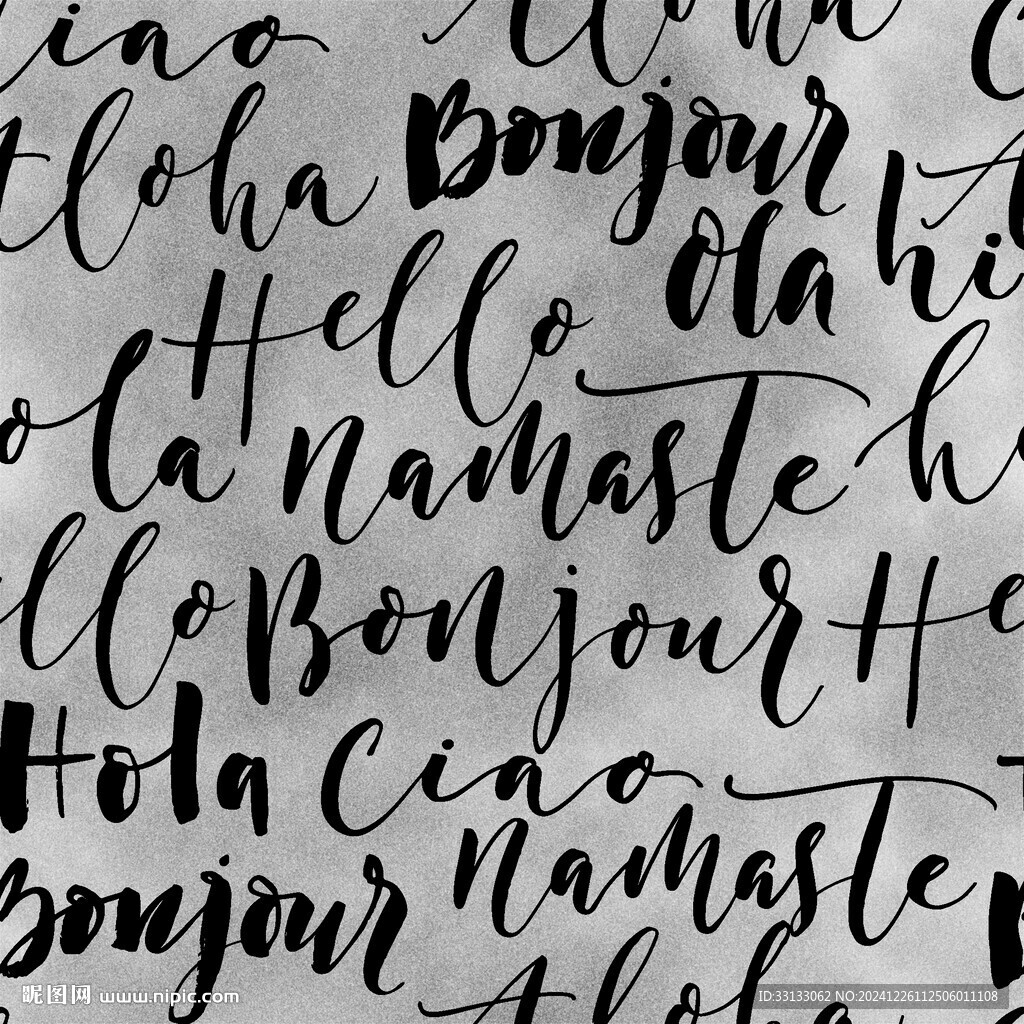 iao
Aloha
Bonjour
Ola
hi
Hello
ola
Namaste
llo
Bonjour
He
Hola
Ciao
Namaste
Bonjour
Aloha
昵图网 www.nipic.com
ID:33133062 NO:20241226112506011108